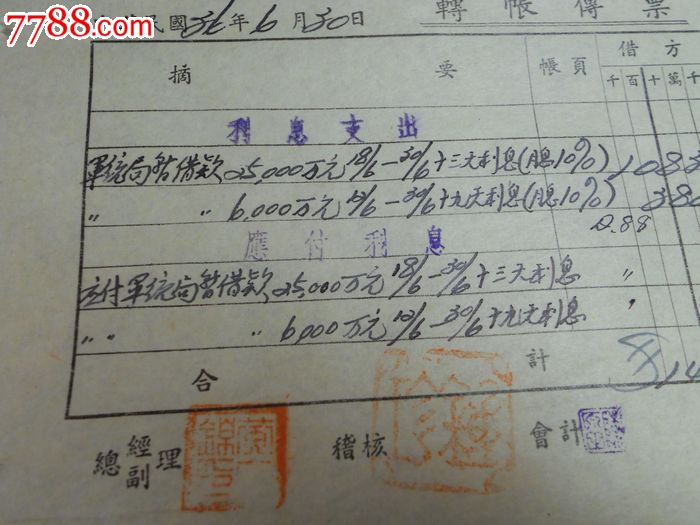 7788.com
民國36年6月30日
轉帳傳票
摘要 帳頁 借方
千百十萬千
利息支出
軍统局暂借款25,000万元18/6—30/6十三天利息(月息10%) 1083
〃 〃 6,000万元12/6—30/6十九天利息(月息10%) 380
應付利息
应付军统局暂借款25,000万元18/6—30/6十三天利息 〃
〃 〃 〃 6,000万元12/6—30/6十九天利息 〃
合計 14
總經副理 稽核 會計